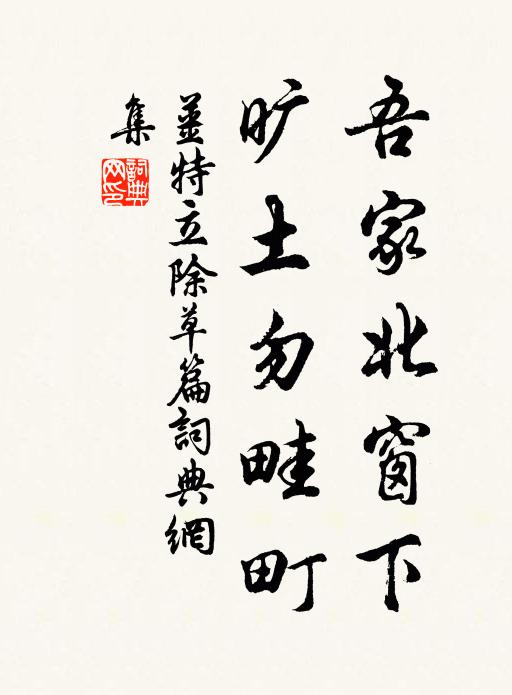 吾家北窗下
旷土勿畦町
姜特立除草篇詞典網
集
詞典网印